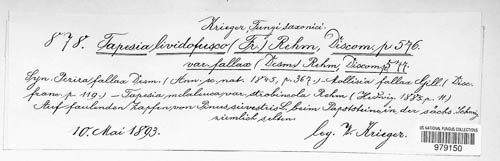 Krieger, Fungi saxonici.
878. Tapesia lividofusca (Fr.) Rehm, Discom. p 576.
var. fallax (Desm) Rehm, Discom. p 577.
Syn. Peziza fallax Desm. (Ann. sc. nat. 1845, p. 367.) – Mollisia fallax Gill. (Disc.
franc. p. 119.) – Tapesia melaleuca var. strobincola Rehm (Hedwig. 1885 p. 11)
Auf faulenden Zapfen von Pinus silvestris L. beim Papststeine in der sächs. Schweiz
ziemlich selten.
10. Mai 1893. leg. W. Krieger.
US NATIONAL FUNGUS COLLECTIONS
979150